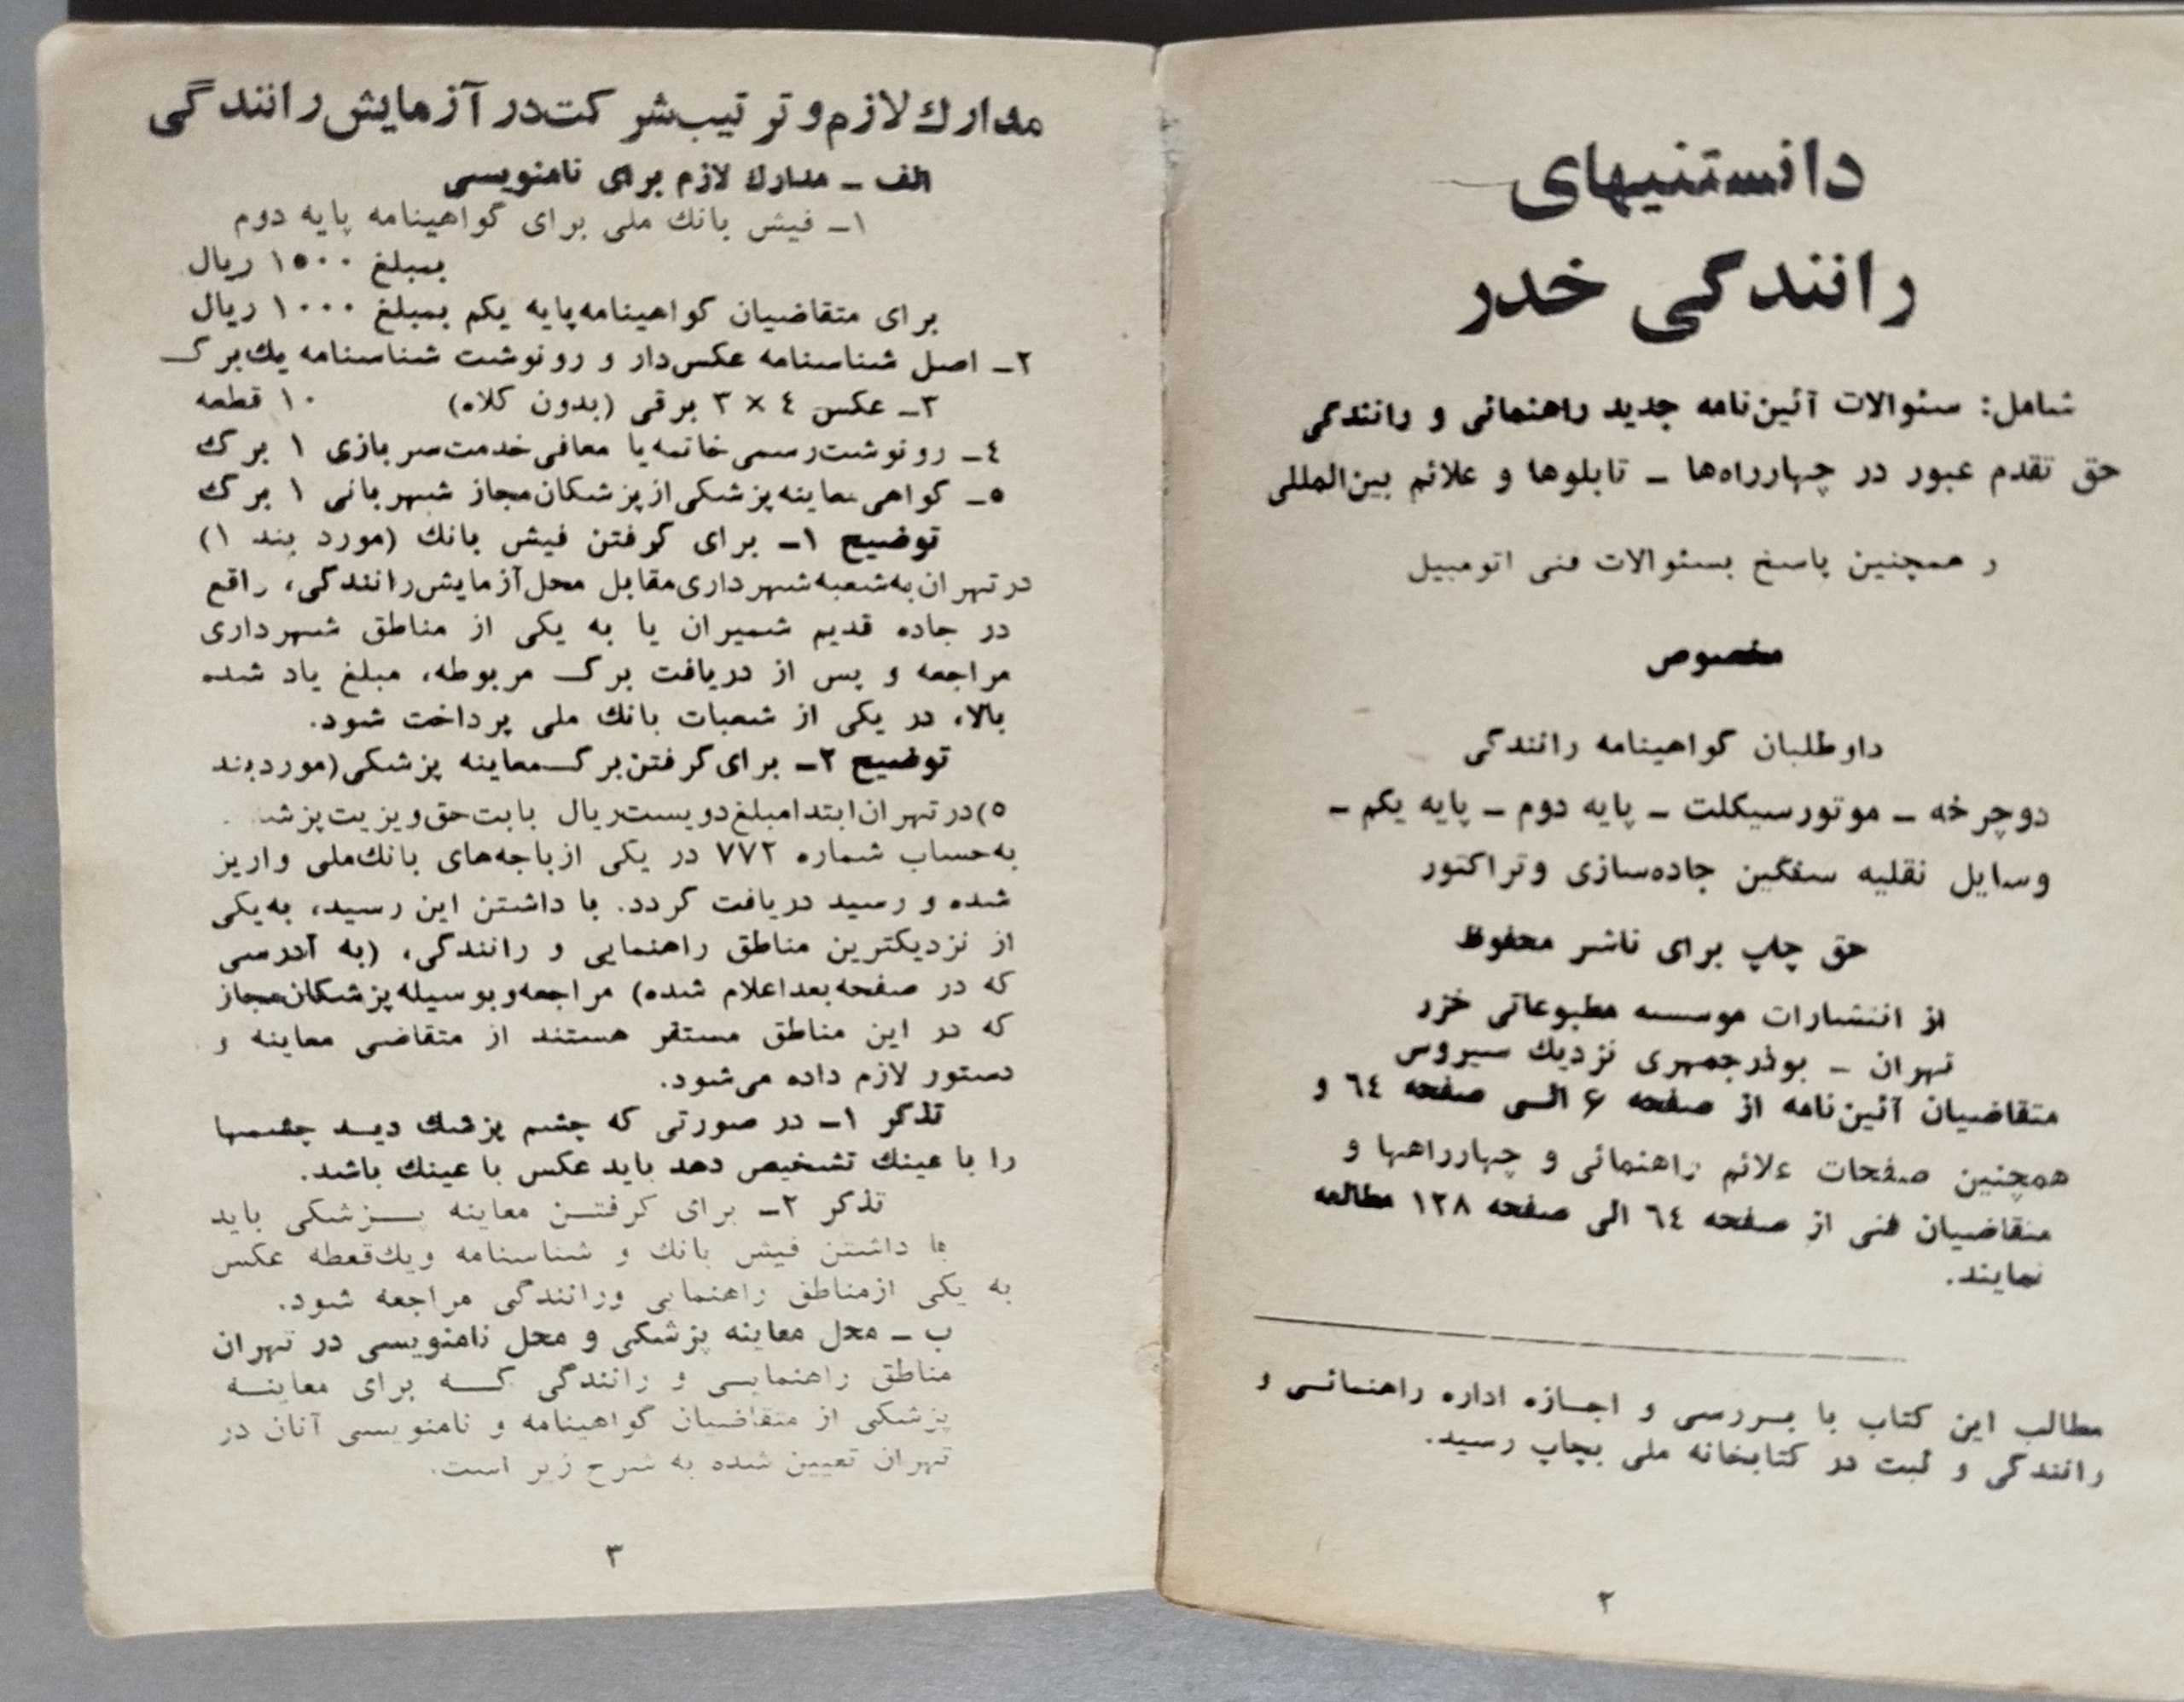 دانستنیهای
رانندگی خدر
شامل: سئوالات آئین‌نامه جدید راهنمائی و رانندگی
حق تقدم عبور در چهارراه‌ها ـ تابلوها و علائم بین‌المللی
ر همچنین پاسخ بسئوالات فنی اتومبیل
مخصوص
داوطلبان گواهینامه رانندگی
دوچرخه ـ موتورسیکلت ـ پایه دوم ـ پایه یکم ـ
وسایل نقلیه سنگین جاده‌سازی وتراکتور
حق چاپ برای ناشر محفوظ
از انتشارات موسسه مطبوعاتی خزر
تهران ـ بوذرجمهری نزدیك سیروس
متقاضیان آئین‌نامه از صفحه ۶ الـی صفحه ٦٤ و
همچنین صفحات علائم راهنمائی و چهارراهها و
متقاضیان فنی از صفحه ٦٤ الی صفحه ۱۲۸ مطالعه
نمایند.
مطالب این کتاب با بـررسی و اجـازه اداره راهنمائـی و
رانندگی و ثبت در کتابخانه ملی بچاپ رسید.
۲
مدارك لازم و ترتیب شرکت در آزمایش رانندگی
الف ـ مدارك لازم برای نامنویسی
۱ـ فیش بانك ملی برای گواهینامه پایه دوم
بمبلغ ۱۵۰۰ ریال
برای متقاضیان گواهینامه پایه یکم بمبلغ ۱۰۰۰ ریال
۲ـ اصل شناسنامه عکس‌دار و رونوشت شناسنامه یك‌برگ
۳ـ عکس ٤ × ۳ برقی (بدون کلاه) ۱۰ قطعه
٤ـ رونوشت رسمی خاتمه یا معافی خدمت سربازی ۱ برگ
۵ـ گواهی معاینه پزشکی از پزشکان مجاز شهربانی ۱ برگ
توضیح ۱ـ برای گرفتن فیش بانك (مورد بند ۱)
در تهران به شعبه شهرداری مقابل محل آزمایش رانندگی، واقع
در جاده قدیم شمیران یا به یکی از مناطق شهرداری
مراجعه و پس از دریافت برگ مربوطه، مبلغ یاد شده
بالا، در یکی از شعبات بانك ملی پرداخت شود.
توضیح ۲ـ برای گرفتن برگ معاینه پزشکی (مورد بند
۵) در تهران ابتدا مبلغ دویست ریال بابت حق ویزیت
به‌حساب شماره ۷۷۲ در یکی از باجه‌های بانك‌ملی واریز
شده و رسید دریافت گردد. با داشتن این رسید، به‌یکی
از نزدیکترین مناطق راهنمایی و رانندگی، (به آدرسی
که در صفحه بعد اعلام شده) مراجعه و بوسیله پزشکان مجاز
که در این مناطق مستقر هستند از متقاضی معاینه و
دستور لازم داده می‌شود.
تذکر ۱ـ در صورتی که چشم پزشك دیـد چشمها
را با عینك تشخیص دهد باید عکس با عینك باشد.
تذکر ۲ـ برای گرفتـن معاینه پـزشکی باید
با داشتن فیش بانك و شناسنامه ویك‌قعطه عکس
به یکی ازمناطق راهنمایی ورانندگی مراجعه شود.
ب ـ محل معاینه پزشکی و محل نامنویسی در تهران
مناطق راهنمایـی و رانندگی کـه برای معاینـه
پزشکی از متقاضیان گواهینامه و نامنویسی آنان در
تهران تعیین شده به شرح زیر است.
۳